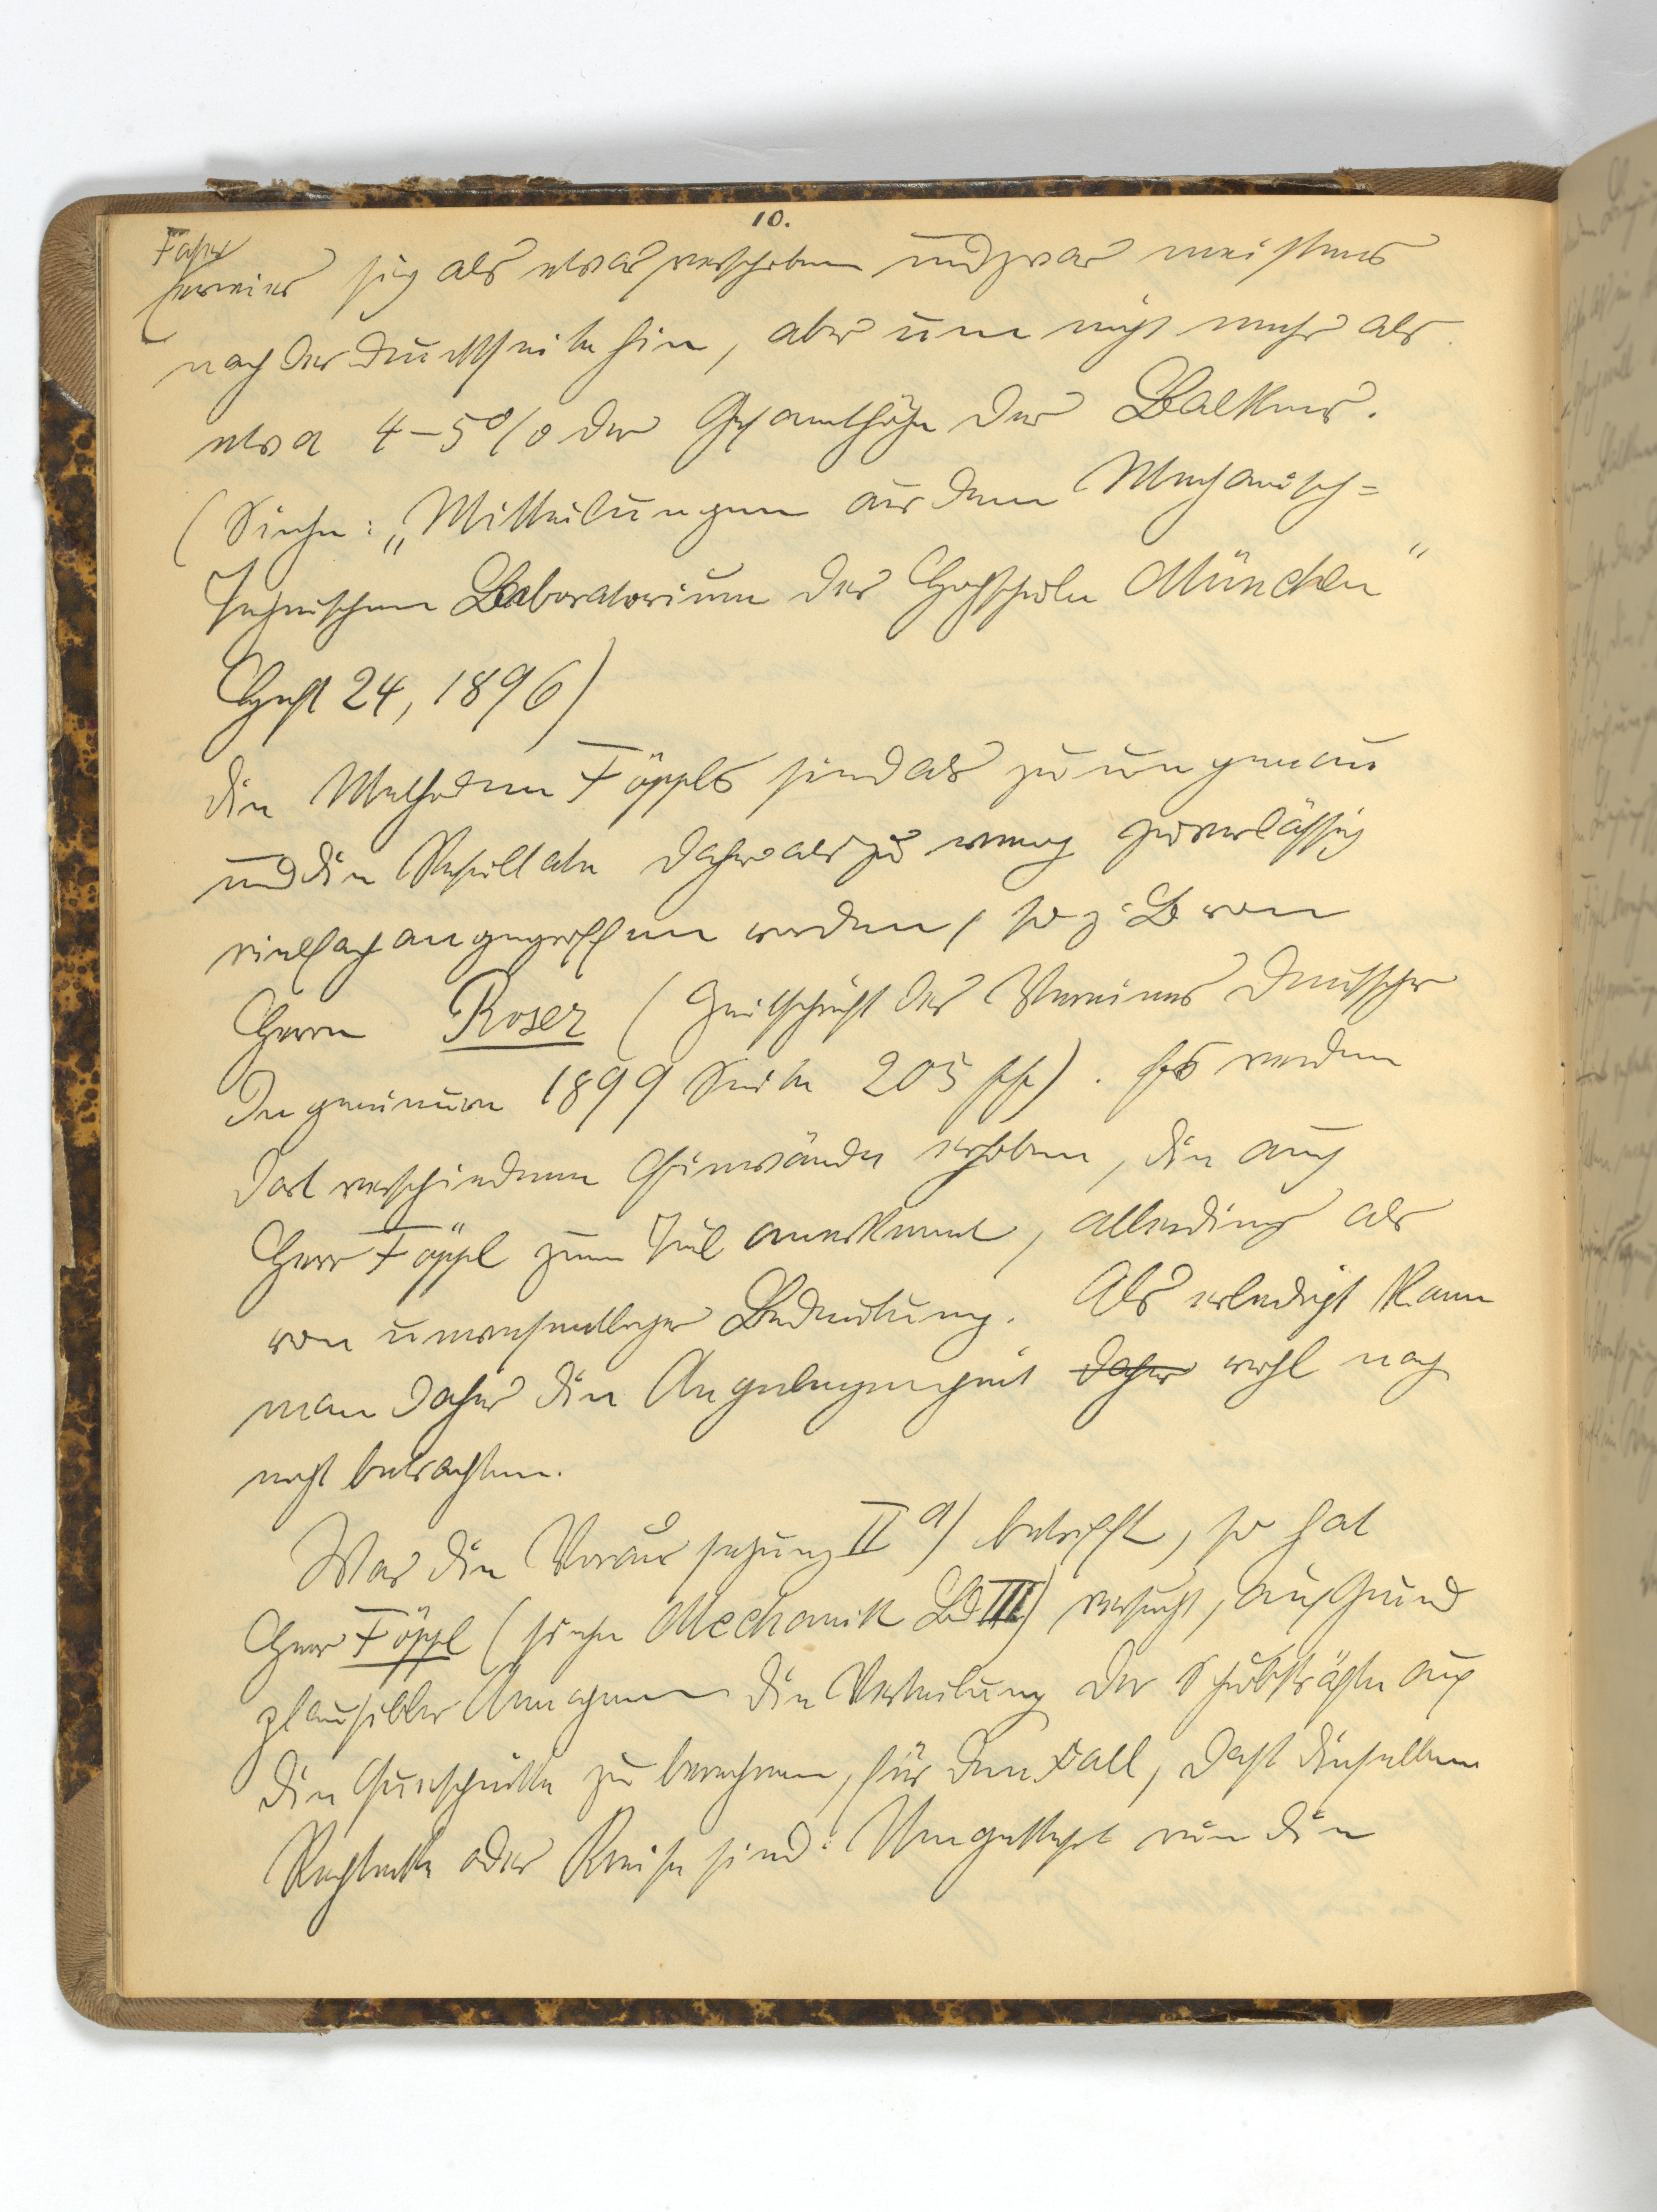 10.
Faser
erwies sich als etwas verschoben und zwar meistens
nach der Druckseite hin, aber um nicht mehr als
etwa 4–5% der Gesamthöhe des Balkens.
(Siehe: „Mitteilungen aus dem Mechanisch=
Technischen Laboratorium der Hochschule München"
Heft 24, 1896)
Die Methoden Föppls sind als zu ungenau
und die Resultate daher als zu wenig zuverlässig
vielfach angegriffen worden, so z. B von
Herrn Roser (Zeitschrift des Vereines Deutscher
Ingenieure 1899 Seite 205 ff). Es werden
dort verschiedene Einwände erhoben, die auch
Herr Föppl zum Teil anerkennt, allerdings als
von unwesentlicher Bedeutung. Als erledigt kann
man daher die Angelegenheit daher wohl noch
nicht betrachten.
Was die Voraussetzung II a) betrifft, so hat
Herr Föppl (siehe Mechanik Bd III) versucht, auf Grund
plausibler Annahmen die Verteilung der Schubkräfte auf
die Querschnitte zu berechnen, für den Fall, daß dieselben
Rechtecke oder Kreise sind. Umgekehrt nun die